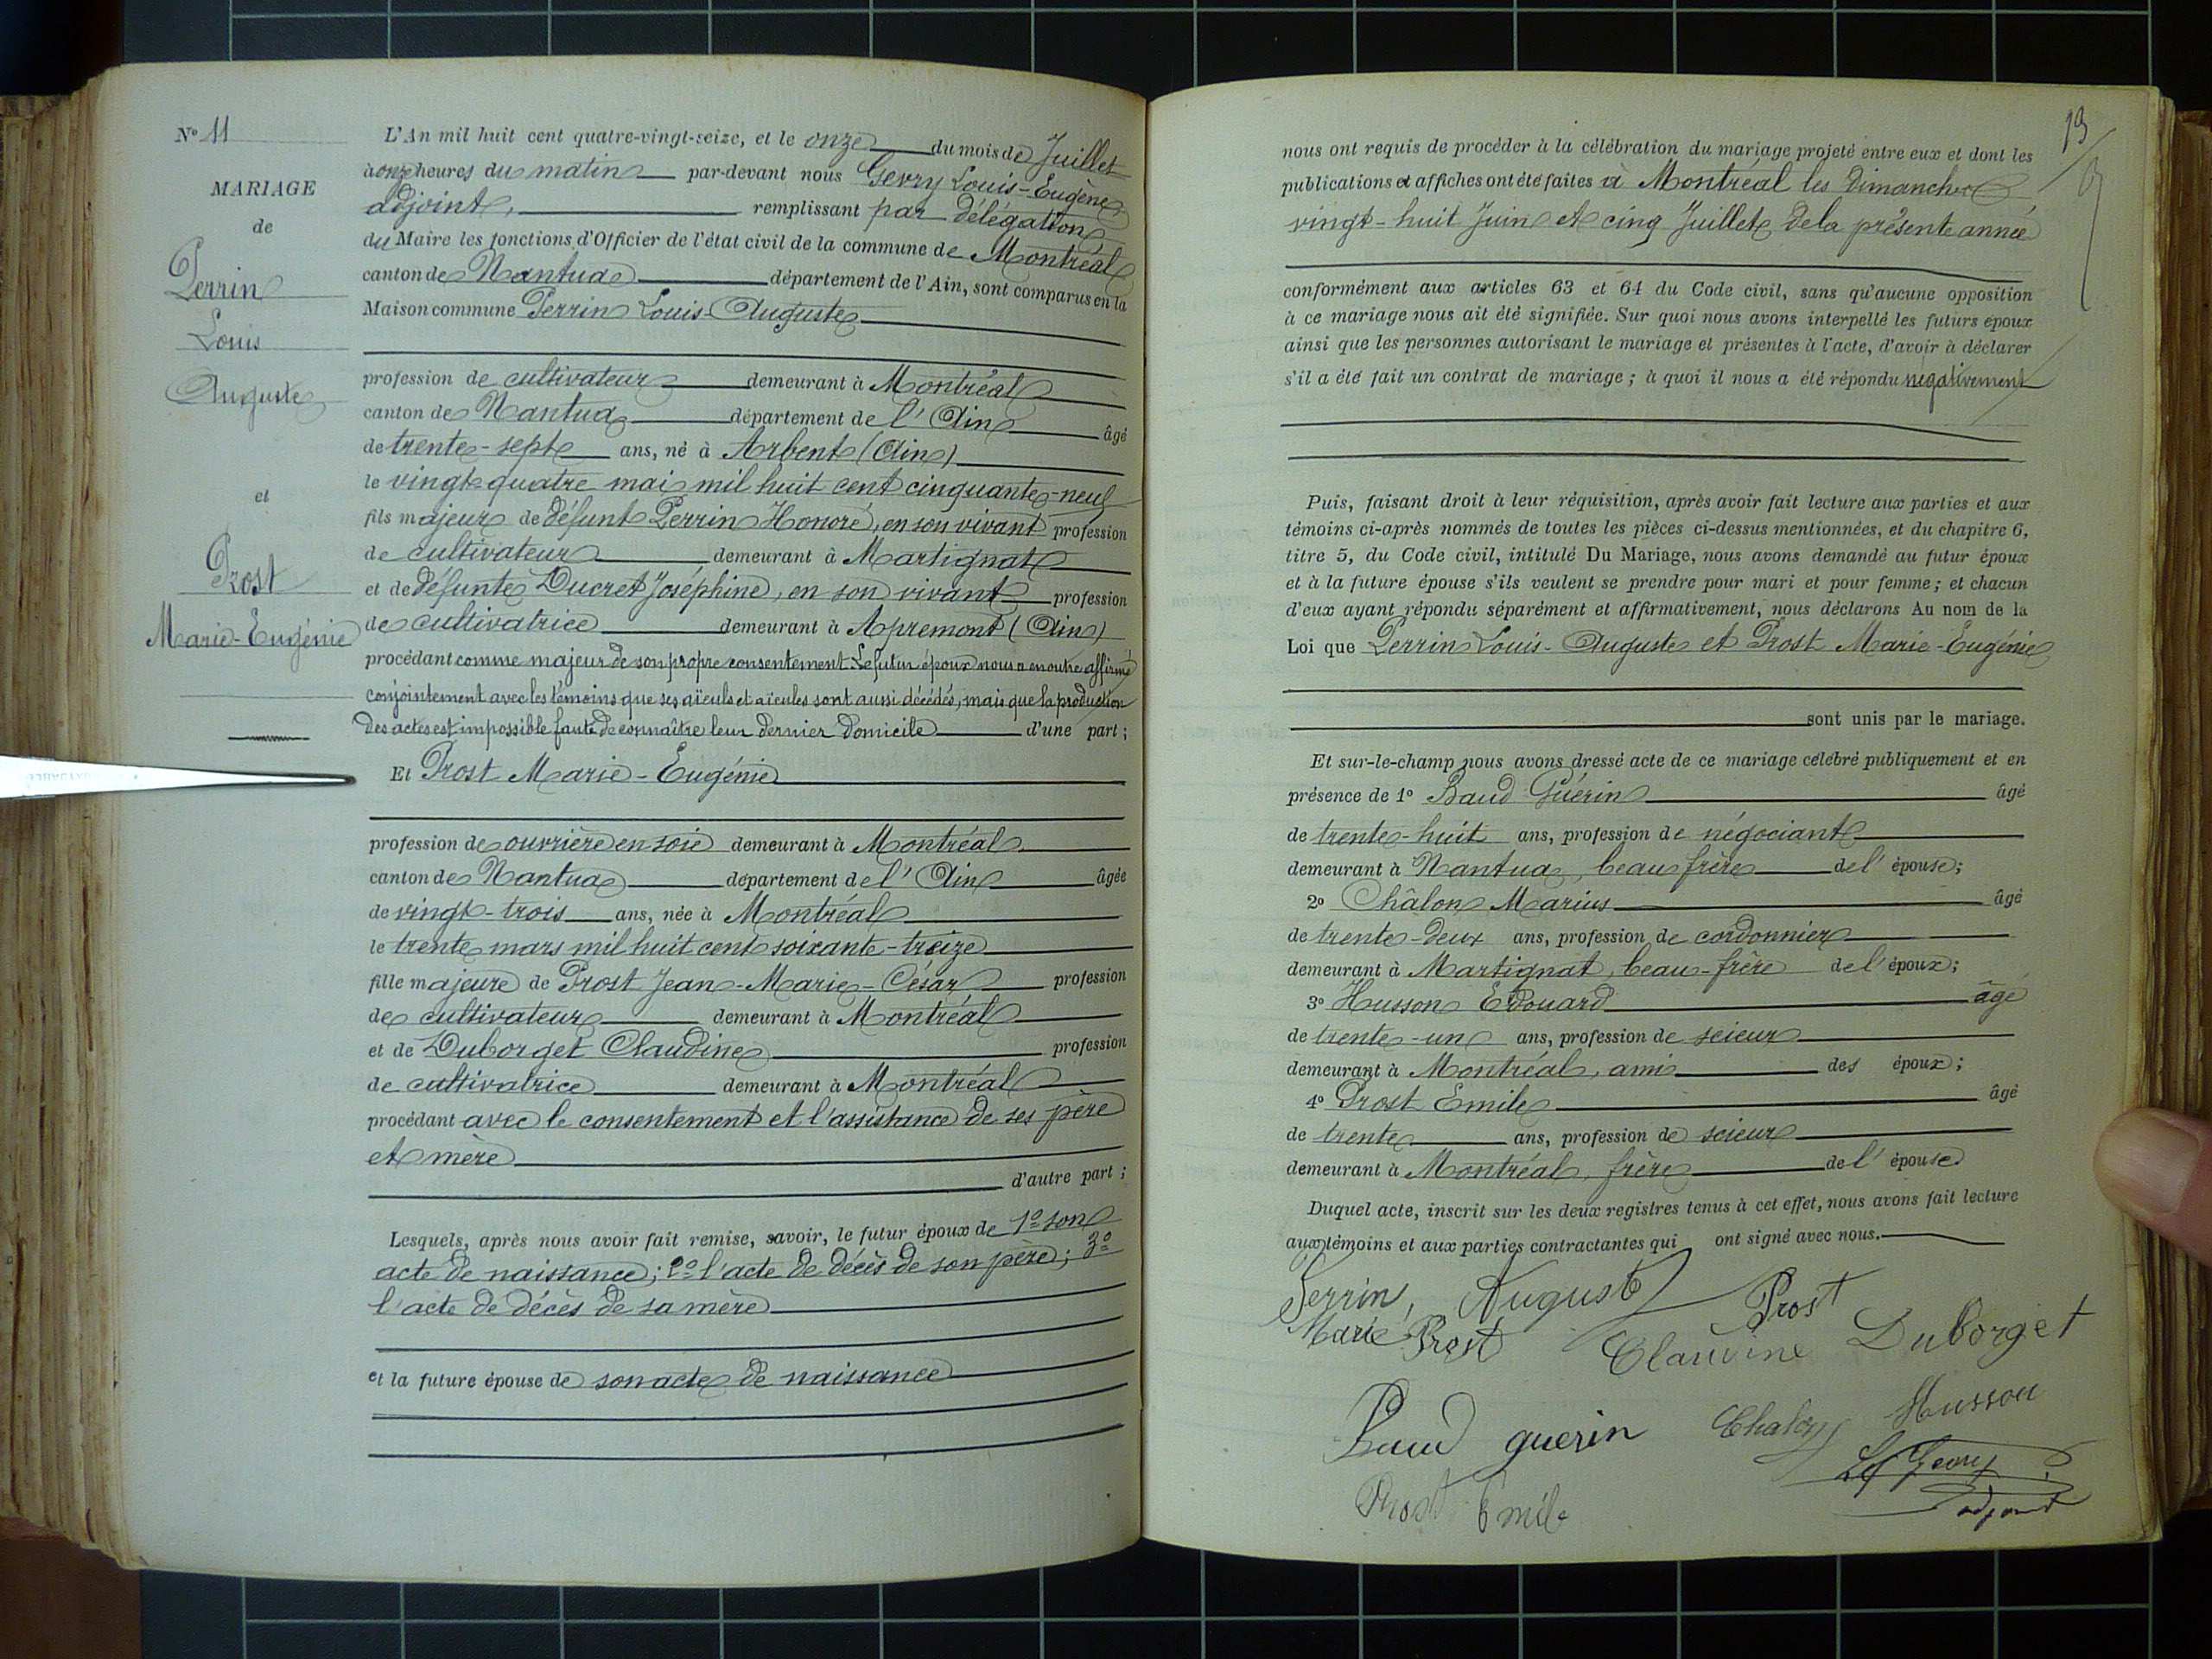 N° 11
MARIAGE
de
Perrin
Louis
Auguste
et
Prost
Marie-Eugénie
L'An mil huit cent quatre-vingt-seize, et le onze du mois de Juillet
à onze heures du matin par-devant nous Gerry Louis-Eugène
adjoint, remplissant par délégation
du Maire les fonctions d'Officier de l'état civil de la commune de Montréal
canton de Nantua département de l'Ain, sont comparus en la
Maison commune Perrin Louis-Auguste
profession de cultivateur demeurant à Montréal
canton de Nantua département de l'Ain âgé
de trente-sept ans, né à Arbent (Ain)
le vingt-quatre mai mil huit cent cinquante-neuf
fils majeur de défunt Perrin Honoré, en son vivant profession
de cultivateur demeurant à Martignat
et de défunte Ducret Joséphine, en son vivant profession
de cultivatrice demeurant à Apremont (Ain)
procédant comme majeur de son propre consentement. Le futur époux nous a en outre affirmé
conjointement avec les témoins que ses aïeuls et aïeules sont aussi décédés, mais que la production
des actes est impossible faute de connaître leur dernier domicile d'une part ;
Et Prost Marie-Eugénie
profession de ouvrière en soie demeurant à Montréal
canton de Nantua département de l'Ain âgée
de vingt-trois ans, née à Montréal
le trente mars mil huit cent soixante-treize
fille majeure de Prost Jean-Marie-César profession
de cultivateur demeurant à Montréal
et de Duborget Claudine profession
de cultivatrice demeurant à Montréal
procédant avec le consentement et l'assistance de ses père
et mère
d'autre part ;
Lesquels, après nous avoir fait remise, savoir, le futur époux de 1° son
acte de naissance ; 2° l'acte de décès de son père ; 3°
l'acte de décès de sa mère
et la future épouse de son acte de naissance
13
nous ont requis de procéder à la célébration du mariage projeté entre eux et dont les
publications et affiches ont été faites à Montréal les Dimanches
vingt-huit Juin et cinq Juillet de la présente année
conformément aux articles 63 et 64 du Code civil, sans qu'aucune opposition
à ce mariage nous ait été signifiée. Sur quoi nous avons interpellé les futurs époux
ainsi que les personnes autorisant le mariage et présentes à l'acte, d'avoir à déclarer
s'il a été fait un contrat de mariage ; à quoi il nous a été répondu négativement
Puis, faisant droit à leur réquisition, après avoir fait lecture aux parties et aux
témoins ci-après nommés de toutes les pièces ci-dessus mentionnées, et du chapitre 6,
titre 5, du Code civil, intitulé Du Mariage, nous avons demandé au futur époux
et à la future épouse s'ils veulent se prendre pour mari et pour femme ; et chacun
d'eux ayant répondu séparément et affirmativement, nous déclarons Au nom de la
Loi que Perrin Louis-Auguste et Prost Marie-Eugénie
sont unis par le mariage.
Et sur-le-champ nous avons dressé acte de ce mariage célébré publiquement et en
présence de 1° Baud Guérin âgé
de trente-huit ans, profession de négociant
demeurant à Nantua, beau frère de l'épouse ;
2° Châlon Marius âgé
de trente-deux ans, profession de cordonnier
demeurant à Martignat, beau-frère de l'époux ;
3° Husson Edouard âgé
de trente-un ans, profession de scieur
demeurant à Montréal, ami des époux ;
4° Prost Emile âgé
de trente ans, profession de scieur
demeurant à Montréal, frère de l'épouse
Duquel acte, inscrit sur les deux registres tenus à cet effet, nous avons fait lecture
aux témoins et aux parties contractantes qui ont signé avec nous.
Perrin, Auguste Prost
Marie Prost Claudine Duborget
Baud guerin Chalon Husson
Prost Emile adjoint